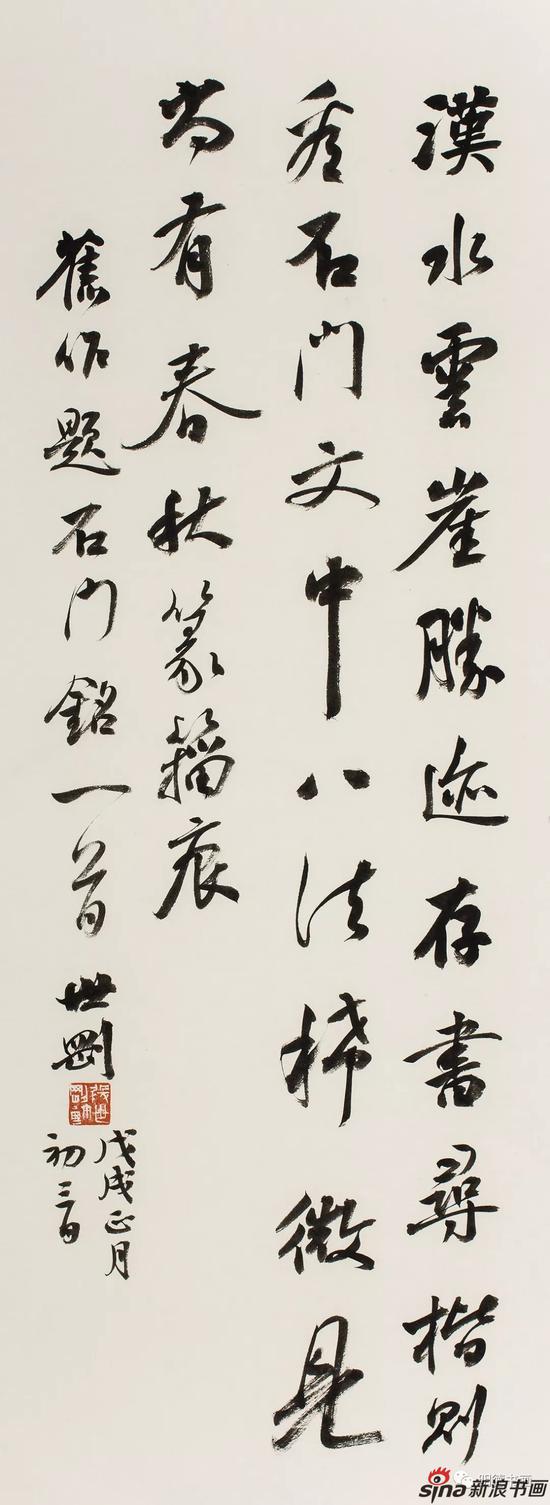 漢水雲崖勝迹存書尋楷則
石門文中八法稀微見
尚有春秋篆籀痕
舊作題石門銘一首 世剛
戊戌正月
初三日
sina新浪书画